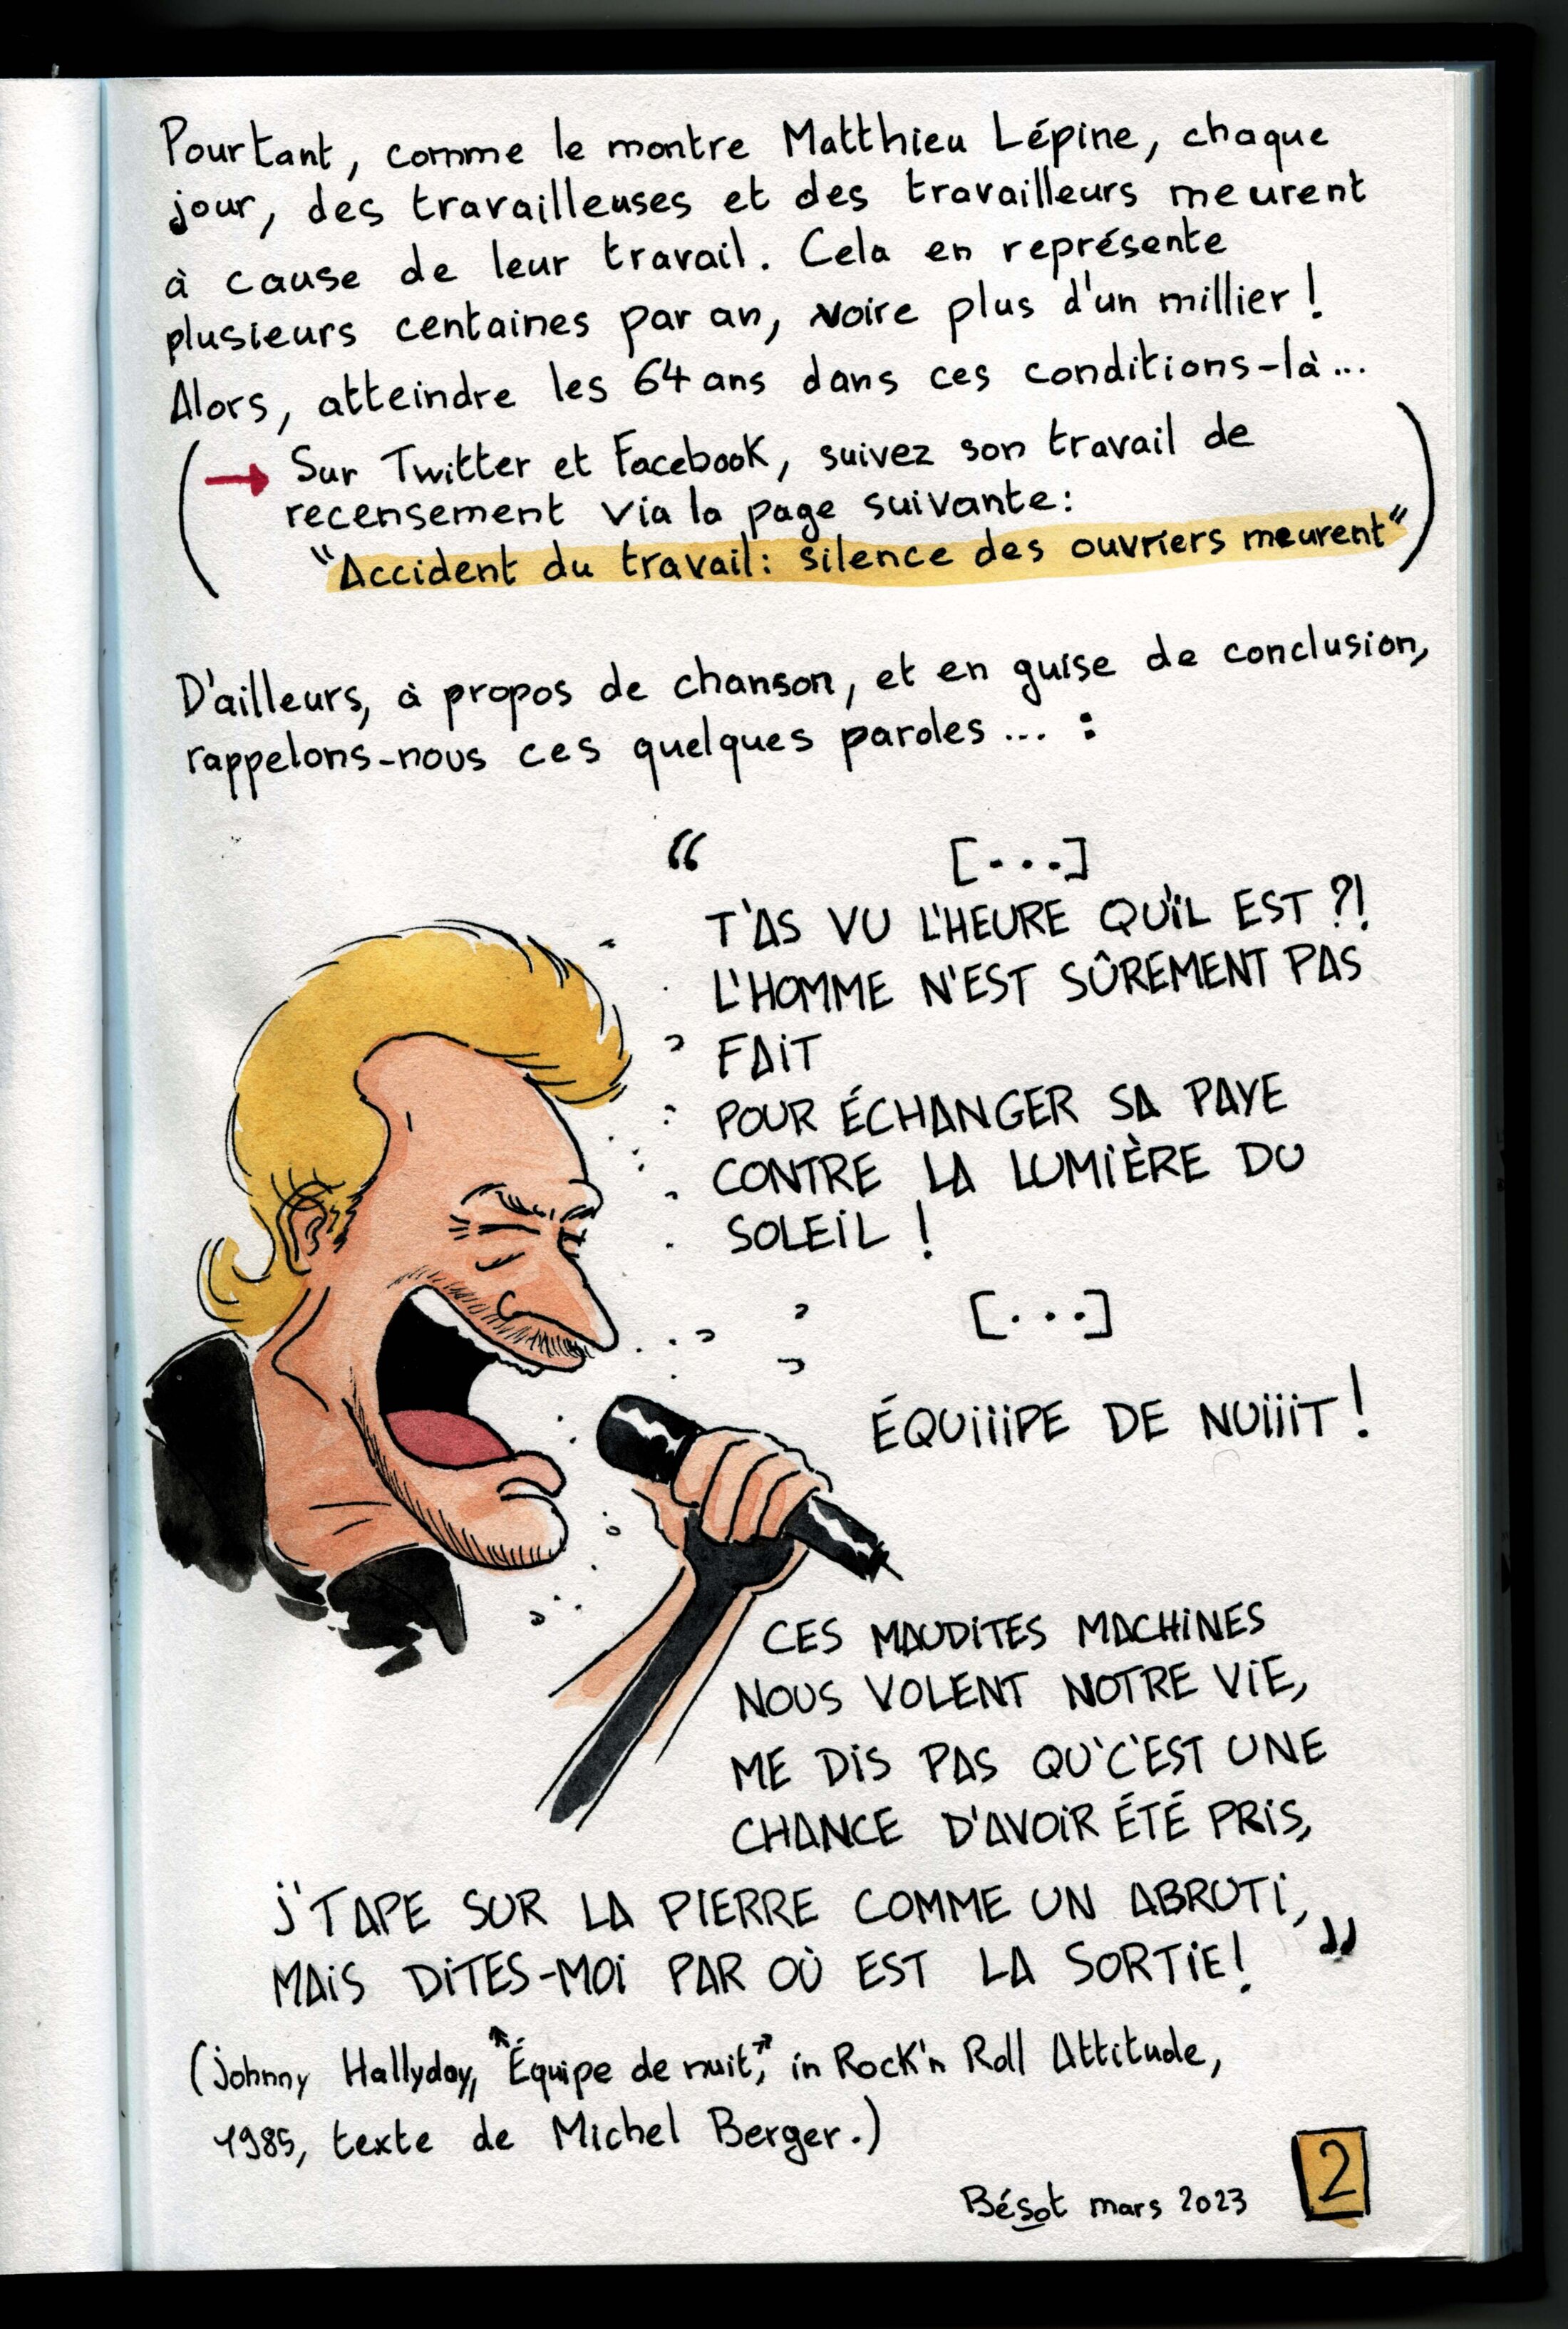 Pourtant, comme le montre Matthieu Lépine, chaque
jour, des travailleuses et des travailleurs meurent
à cause de leur travail. Cela en représente
plusieurs centaines par an, voire plus d'un millier !
Alors, atteindre les 64 ans dans ces conditions-là...
(→ Sur Twitter et Facebook, suivez son travail de
recensement via la page suivante :
"Accident du travail : silence des ouvriers meurent")
D'ailleurs, à propos de chanson, et en guise de conclusion,
rappelons-nous ces quelques paroles ... :
“ [...]
T'AS VU L'HEURE QU'IL EST ?!
L'HOMME N'EST SÛREMENT PAS
FAIT
POUR ÉCHANGER SA PAYE
CONTRE LA LUMIÈRE DU
SOLEIL !
[...]
ÉQUIIIPE DE NUIIIT !
CES MAUDITES MACHINES
NOUS VOLENT NOTRE VIE,
ME DIS PAS QU'C'EST UNE
CHANCE D'AVOIR ÉTÉ PRIS,
J'TAPE SUR LA PIERRE COMME UN ABRUTI,
MAIS DITES-MOI PAR OÙ EST LA SORTIE ! ”
(Johnny Hallyday, "Équipe de nuit", in Rock'n Roll Attitude,
1985, texte de Michel Berger.)
Bésot mars 2023
2